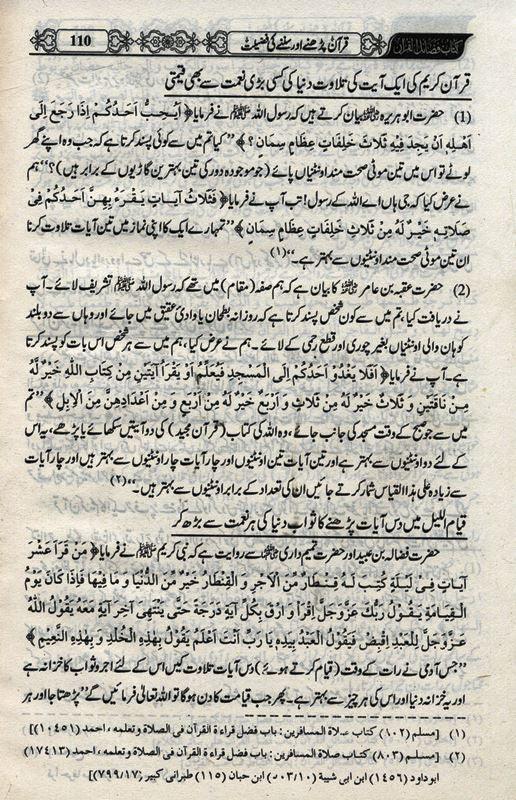 کتاب فضائل القرآن
قرآن پڑھنے اور سننے کی فضیلت
110
قرآن کریم کی ایک آیت کی تلاوت دنیا کی کسی بڑی نعمت سے بھی قیمتی
(1) حضرت ابوہریرہ ﷺ بیان کرتے ہیں کہ رسول اللہ ﷺ نے فرمایا ﴿ اَيُحِبُّ اَحَدُكُمْ اِذَا رَجَعَ اِلَى
اَهْلِهِ اَنْ يَجِدَ فِيْهِ ثَلَاثَ خَلِفَاتٍ عِظَامٍ سِمَانٍ ؟ ﴾ ”کیا تم میں سے کوئی پسند کرتا ہے کہ جب وہ اپنے گھر
لوٹے تو اس میں تین موٹی صحت مند اونٹنیاں پائے (جو موجودہ دور کی تین بہترین گاڑیوں کے برابر ہیں)؟“ ہم
نے عرض کیا کہ جی ہاں اے اللہ کے رسول! تب آپ نے فرمایا ﴿ فَثَلَاثُ آيَاتٍ يَقْرَءُ بِهِنَّ اَحَدُكُمْ فِىْ
صَلَاتِهِ خَيْرٌ لَهُ مِنْ ثَلَاثِ خَلِفَاتٍ عِظَامٍ سِمَانٍ ﴾ ”تمہارے ایک کا اپنی نماز میں تین آیات تلاوت کرنا
ان تین موٹی صحت مند اونٹنیوں سے بہتر ہے۔“ (۱)
(2) حضرت عقبہ بن عامر کا بیان ہے کہ ہم صفہ (مقام) میں تھے کہ رسول اللہ ﷺ تشریف لائے۔ آپ
نے دریافت کیا، تم میں سے کون شخص پسند کرتا ہے کہ روزانہ بطحان یا وادی عقیق میں جائے اور وہاں سے دو بلند
کوہان والی اونٹنیاں بغیر چوری اور قطع رحمی کے لائے۔ ہم نے عرض کیا، ہم میں سے ہر شخص اس بات کو پسند کرتا
ہے۔ آپ نے فرمایا ﴿ اَفَلَا يَغْدُوْ اَحَدُكُمْ اِلَى الْمَسْجِدِ فَيَعْلَمُ اَوْ يَقْرَأُ آيَتَيْنِ مِنْ كِتَابِ اللّٰهِ خَيْرٌ لَهُ
مِنْ نَاقَتَيْنِ وَ ثَلَاثٌ خَيْرٌ لَهُ مِنْ ثَلَاثٍ وَ اَرْبَعٌ خَيْرٌ لَهُ مِنْ اَرْبَعٍ وَ مِنْ اَعْدَادِهِنَّ مِنَ الْاِبِلِ ﴾ ”تم
میں سے جو صبح کے وقت مسجد کی جانب جائے، وہ اللہ کی کتاب (قرآن مجید) کی دو آیتیں سکھائے یا پڑھے، یہ اس
کے لئے دو اونٹنیوں سے بہتر ہے اور تین آیات تین اونٹنیوں اور چار آیات چار اونٹنیوں سے بہتر ہیں اور چار آیات
سے زیادہ علی ہذا القیاس شمار کرتے جائیں ان کی تعداد کے برابر اونٹنیوں سے بہتر ہیں۔“ (۲)
قیام اللیل میں دس آیات پڑھنے کا ثواب دنیا کی ہر نعمت سے بڑھ کر
حضرت فضالہ بن عبید اور حضرت تمیم داری سے روایت ہے کہ نبی کریم ﷺ نے فرمایا ﴿ مَنْ قَرَأَ عَشْرَ
آيَاتٍ فِىْ لَيْلَةٍ كُتِبَ لَهُ قِنْطَارٌ مِنَ الْاَجْرِ وَ الْقِنْطَارُ خَيْرٌ مِنَ الدُّنْيَا وَ مَا فِيْهَا فَاِذَا كَانَ يَوْمُ
الْقِيَامَةِ يَقُوْلُ رَبُّكَ عَزَّ وَجَلَّ اِقْرَأْ وَ ارْقَ بِكُلِّ آيَةٍ دَرَجَةً حَتّٰى يَنْتَهِىَ اٰخِرَ آيَةٍ مَعَهُ يَقُوْلُ اللّٰهُ
عَزَّ وَجَلَّ لِلْعَبْدِ اِقْبِضْ فَيَقُوْلُ الْعَبْدُ بِيَدِهِ يَا رَبِّ اَنْتَ اَعْلَمُ يَقُوْلُ بِهٰذِهِ الْخُلْدَ وَ بِهٰذِهِ النَّعِيْمَ ﴾
”جس آدمی نے رات کے وقت (قیام کرتے ہوئے) دس آیات تلاوت کیں اس کے لئے اجر و ثواب کا خزانہ ہے
اور یہ خزانہ دنیا اور اس کی ہر چیز سے بہتر ہے۔ پھر جب قیامت کا دن ہوگا تو اللہ تعالیٰ فرمائیں گے ”پڑھتا جا اور ہر
(۱) [مسلم (۸۰۲) کتاب صلاة المسافرين : باب فضل قراءة القرآن فى الصلاة و تعلمه ، احمد (۱۰۴۵۱)]
(۲) [مسلم (۸۰۳) کتاب صلاة المسافرين : باب فضل قراءة القرآن فى الصلاة و تعلمه ، احمد (۱۷۴۱۳)
ابو داود (۱۴۵۶) ابن ابى شيبة (۵۰۳/۱۰) ابن حبان (۱۱۵) طبرانى كبير (۷۹۹/۱۷)]